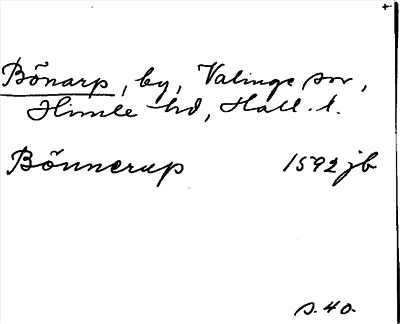 Bönarp, by, Valinge sn,
Himle hd, Hall. l.
Bönnerup 1592 jb
s. 40.